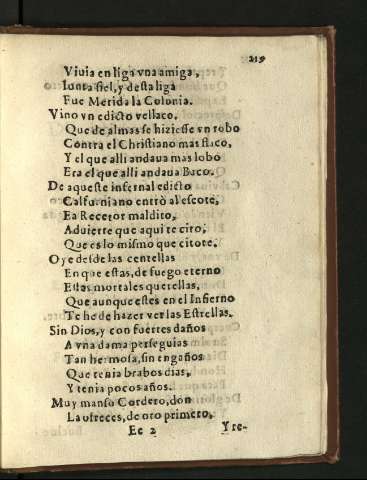 219
Viuia en liga vna amiga,
Iunta fiel, y desta liga
Fue Merida la Colonia.
Vino vn edicto vellaco,
Que de almas se hiziesse vn robo
Contra el Christiano mas flaco,
Y el que alli andaua mas lobo
Era el que alli andaua Baco.
De aqueste infernal edicto
Calfurniano entrò al escote,
Ea Recetor maldito,
Aduierte que aqui te cito,
Que es lo mismo que citote.
Oye desde las centellas
En que estas, de fuego eterno
Estas mortales querellas,
Que aunque estes en el Infierno
Te he de hazer ver las Estrellas.
Sin Dios, y con fuertes daños
A vna dama perseguias
Tan hermosa, sin engaños
Que tenia brabos dias,
Y tenia pocos años.
Muy manso Cordero, don
La ofreces, de oro primero,
Ee 2 Y re-